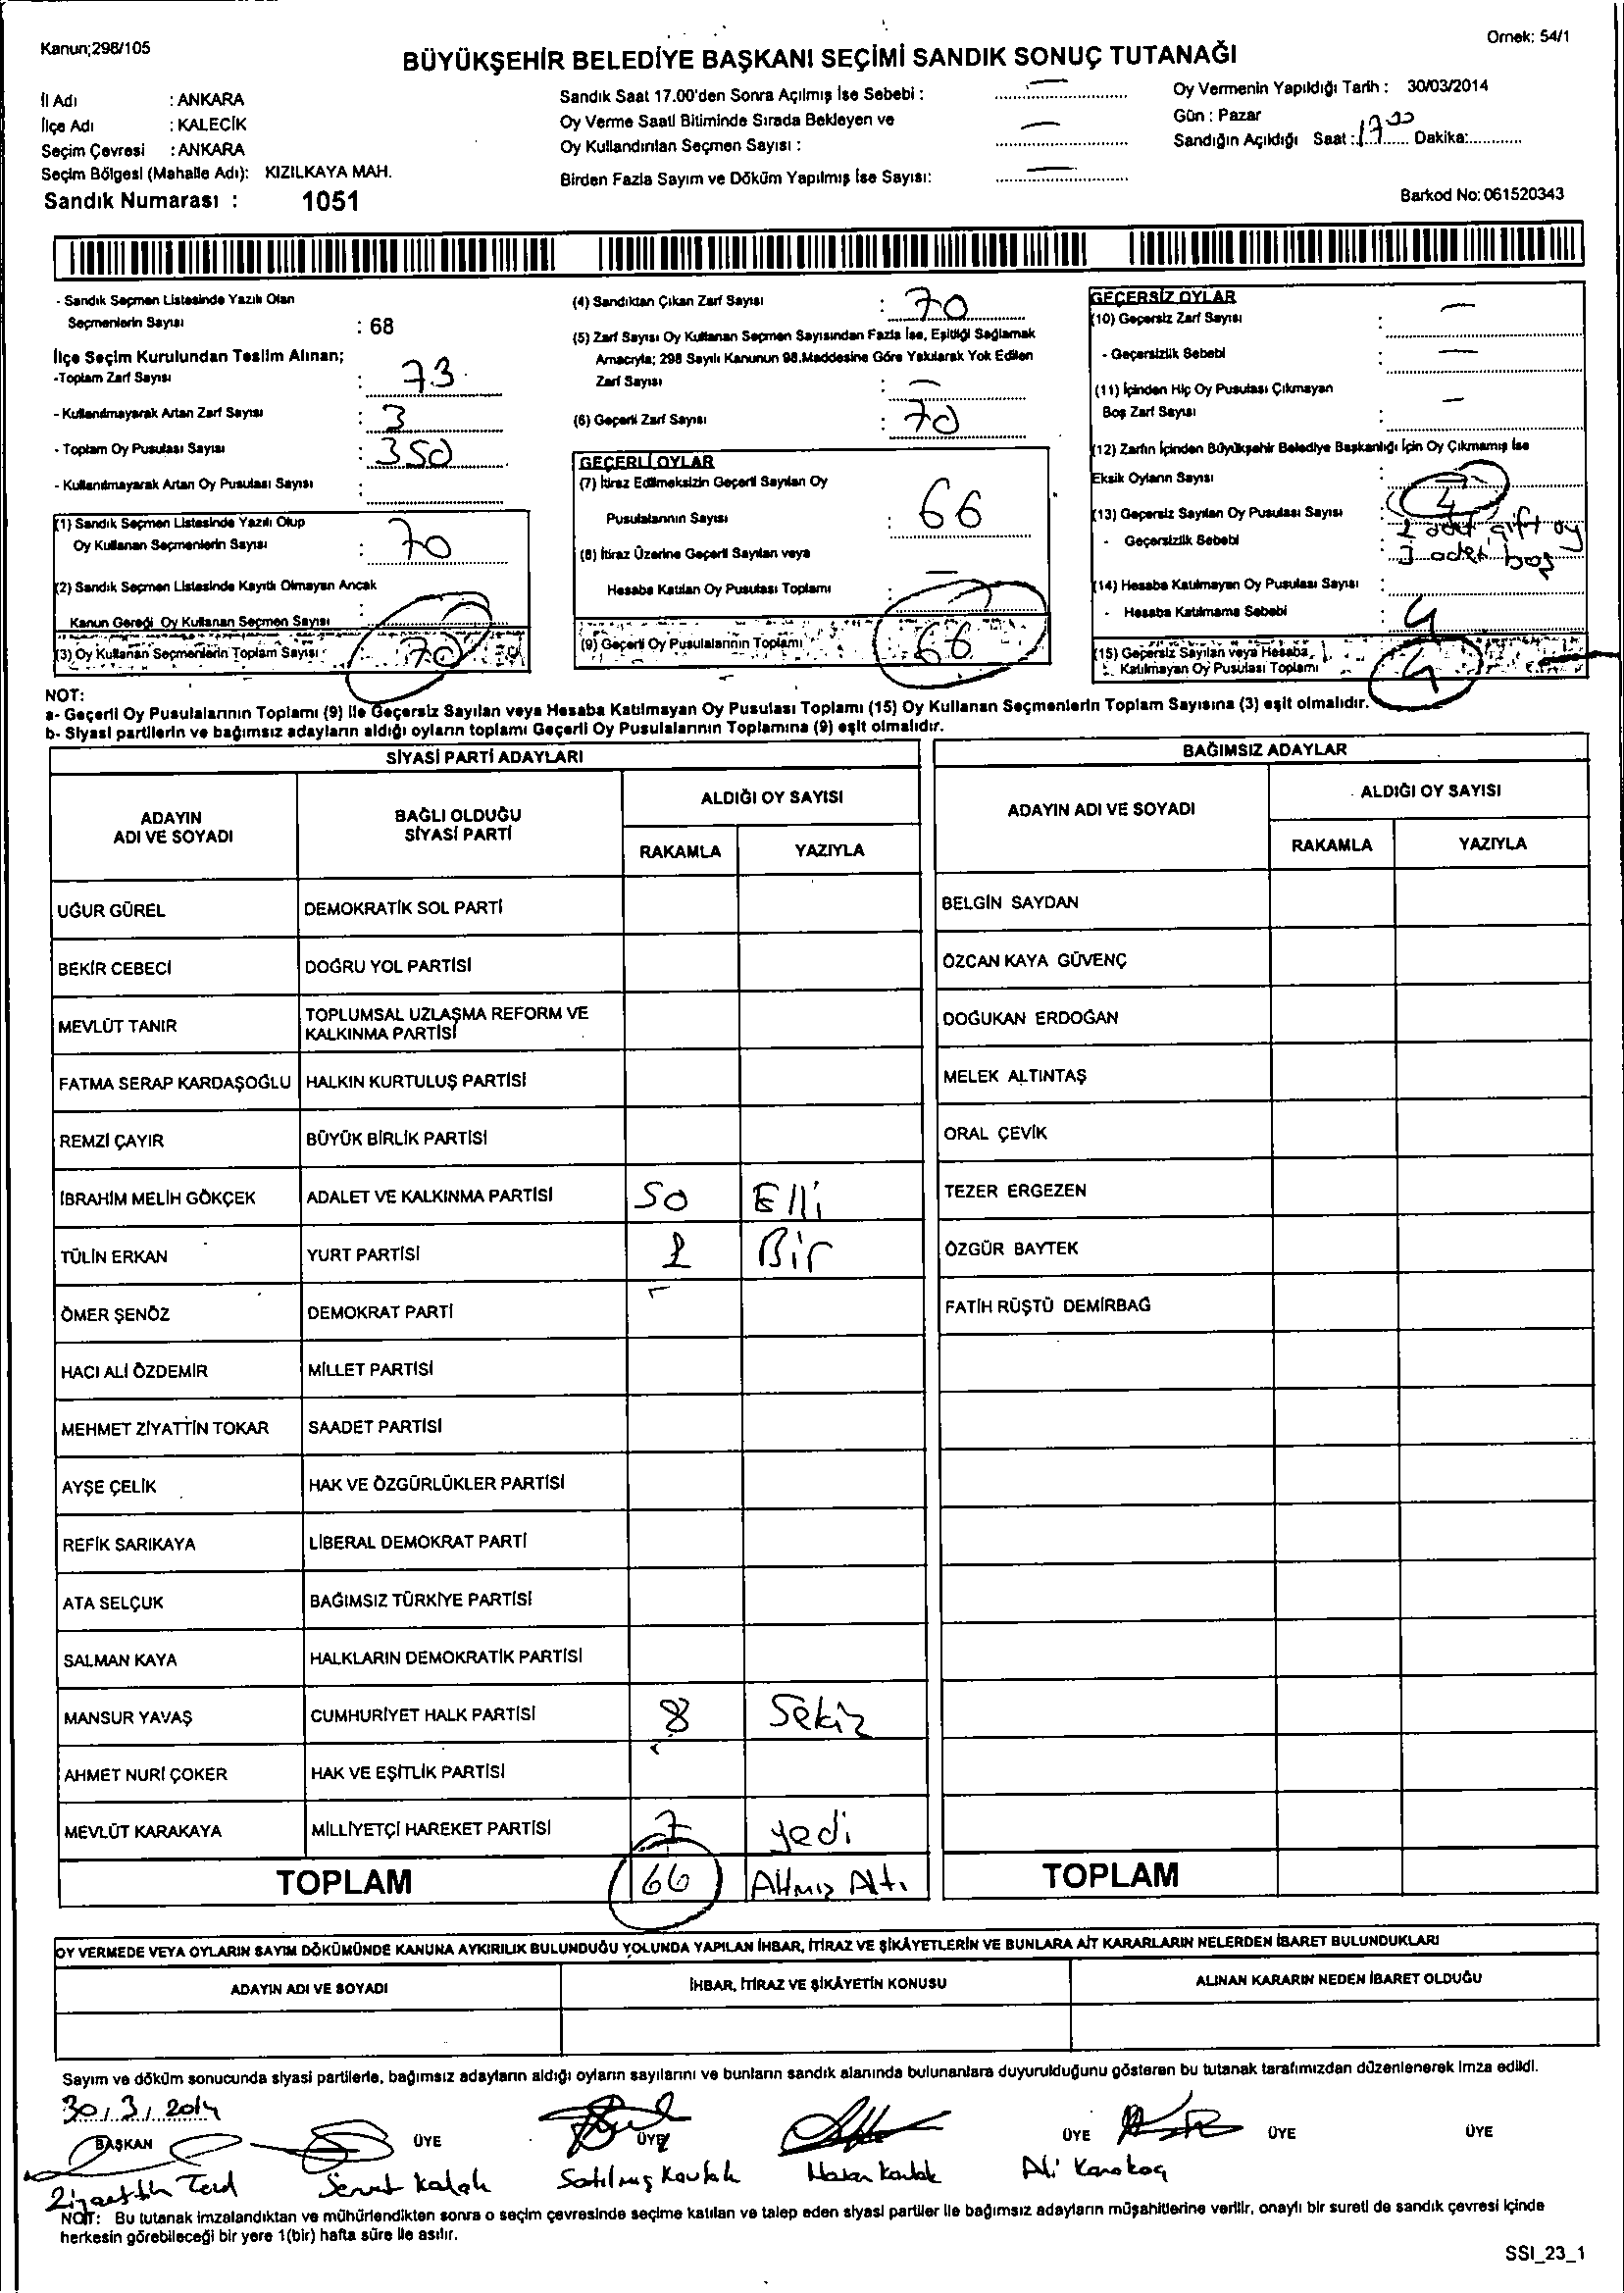 Kanun;298/105
Örnek: 54/1
BÜYÜKŞEHİR BELEDİYE BAŞKANI SEÇİMİ SANDIK SONUÇ TUTANAĞI
İl Adı : ANKARA
İlçe Adı : KALECİK
Seçim Çevresi : ANKARA
Seçim Bölgesi (Mahalle Adı): KIZILKAYA MAH.
Sandık Numarası : 1051
Sandık Saat 17.00'den Sonra Açılmış İse Sebebi : —
Oy Verme Saati Bitiminde Sırada Bekleyen ve
Oy Kullandırılan Seçmen Sayısı : —
Birden Fazla Sayım ve Döküm Yapılmış İse Sayısı: —
Oy Vermenin Yapıldığı Tarih : 30/03/2014
Gün : Pazar
Sandığın Açıldığı Saat : 17 00 Dakika:............
Barkod No: 061520343
- Sandık Seçmen Listesinde Yazılı Olan
Seçmenlerin Sayısı : 68
İlçe Seçim Kurulundan Teslim Alınan;
-Toplam Zarf Sayısı : 73
- Kullanılmayarak Artan Zarf Sayısı : 3
- Toplam Oy Pusulası Sayısı : 350
- Kullanılmayarak Artan Oy Pusulası Sayısı :
(1) Sandık Seçmen Listesinde Yazılı Olup
Oy Kullanan Seçmenlerin Sayısı : 70
(2) Sandık Seçmen Listesinde Kayıtlı Olmayan Ancak
Kanun Gereği Oy Kullanan Seçmen Sayısı :
(3) Oy Kullanan Seçmenlerin Toplam Sayısı : 70
(4) Sandıktan Çıkan Zarf Sayısı : 70
(5) Zarf Sayısı Oy Kullanan Seçmen Sayısından Fazla İse, Eşitliği Sağlamak
Amacıyla; 298 Sayılı Kanunun 98.Maddesine Göre Yakılarak Yok Edilen
Zarf Sayısı : —
(6) Geçerli Zarf Sayısı : 70
GEÇERLİ OYLAR
(7) İtiraz Edilmeksizin Geçerli Sayılan Oy
Pusulalarının Sayısı : 66
(8) İtiraz Üzerine Geçerli Sayılan veya
Hesaba Katılan Oy Pusulası Toplamı : —
(9) Geçerli Oy Pusulalarının Toplamı : 66
GEÇERSİZ OYLAR
(10) Geçersiz Zarf Sayısı : —
- Geçersizlik Sebebi : —
(11) İçinden Hiç Oy Pusulası Çıkmayan
Boş Zarf Sayısı : —
(12) Zarfın İçinden Büyükşehir Belediye Başkanlığı İçin Oy Çıkmamış İse
Eksik Oyların Sayısı : —
(13) Geçersiz Sayılan Oy Pusulası Sayısı : 4
- Geçersizlik Sebebi : 1 adet çift oy
3 adet boş
(14) Hesaba Katılmayan Oy Pusulası Sayısı :
- Hesaba Katılmama Sebebi : 4
(15) Geçersiz Sayılan veya Hesaba
Katılmayan Oy Pusulası Toplamı : 4
NOT:
a- Geçerli Oy Pusulalarının Toplamı (9) ile Geçersiz Sayılan veya Hesaba Katılmayan Oy Pusulası Toplamı (15) Oy Kullanan Seçmenlerin Toplam Sayısına (3) eşit olmalıdır.
b- Siyasi partilerin ve bağımsız adayların aldığı oyların toplamı Geçerli Oy Pusulalarının Toplamına (9) eşit olmalıdır.
SİYASİ PARTİ ADAYLARI
ADAYIN ADI VE SOYADI
BAĞLI OLDUĞU SİYASİ PARTİ
ALDIĞI OY SAYISI
RAKAMLA YAZIYLA
UĞUR GÜREL DEMOKRATİK SOL PARTİ
BEKİR CEBECİ DOĞRU YOL PARTİSİ
MEVLÜT TANIR TOPLUMSAL UZLAŞMA REFORM VE KALKINMA PARTİSİ
FATMA SERAP KARDAŞOĞLU HALKIN KURTULUŞ PARTİSİ
REMZİ ÇAYIR BÜYÜK BİRLİK PARTİSİ
İBRAHİM MELİH GÖKÇEK ADALET VE KALKINMA PARTİSİ 50 Elli
TÜLİN ERKAN YURT PARTİSİ 1 Bir
ÖMER ŞENÖZ DEMOKRAT PARTİ
HACI ALİ ÖZDEMİR MİLLET PARTİSİ
MEHMET ZİYATTİN TOKAR SAADET PARTİSİ
AYŞE ÇELİK HAK VE ÖZGÜRLÜKLER PARTİSİ
REFİK SARIKAYA LİBERAL DEMOKRAT PARTİ
ATA SELÇUK BAĞIMSIZ TÜRKİYE PARTİSİ
SALMAN KAYA HALKLARIN DEMOKRATİK PARTİSİ
MANSUR YAVAŞ CUMHURİYET HALK PARTİSİ 8 Sekiz
AHMET NURİ ÇOKER HAK VE EŞİTLİK PARTİSİ
MEVLÜT KARAKAYA MİLLİYETÇİ HAREKET PARTİSİ 7 yedi
TOPLAM 66 Altmış Altı
BAĞIMSIZ ADAYLAR
ADAYIN ADI VE SOYADI
ALDIĞI OY SAYISI
RAKAMLA YAZIYLA
BELGİN SAYDAN
ÖZCAN KAYA GÜVENÇ
DOĞUKAN ERDOĞAN
MELEK ALTINTAŞ
ORAL ÇEVİK
TEZER ERGEZEN
ÖZGÜR BAYTEK
FATİH RÜŞTÜ DEMİRBAĞ
TOPLAM
OY VERMEDE VEYA OYLARIN SAYIM DÖKÜMÜNDE KANUNA AYKIRILIK BULUNDUĞU YOLUNDA YAPILAN İHBAR, İTİRAZ VE ŞİKÂYETLERİN VE BUNLARA AİT KARARLARIN NELERDEN İBARET BULUNDUKLARI
ADAYIN ADI VE SOYADI İHBAR, İTİRAZ VE ŞİKÂYETİN KONUSU ALINAN KARARIN NEDEN İBARET OLDUĞU
Sayım ve döküm sonucunda siyasi partilerle, bağımsız adayların aldığı oyların sayılarını ve bunların sandık alanında bulunanlara duyurulduğunu gösteren bu tutanak tarafımızdan düzenlenerek imza edildi.
30/3/2014
BAŞKAN ÜYE ÜYE ÜYE ÜYE ÜYE
Satılmış Hasan Ali Karakoç
NOT: Bu tutanak imzalandıktan ve mühürlendikten sonra o seçim çevresinde seçime katılan ve talep eden siyasi partiler ile bağımsız adayların müşahitlerine verilir, onaylı bir sureti de sandık çevresi içinde
herkesin görebileceği bir yere 1(bir) hafta süre ile asılır.
SSI_23_1